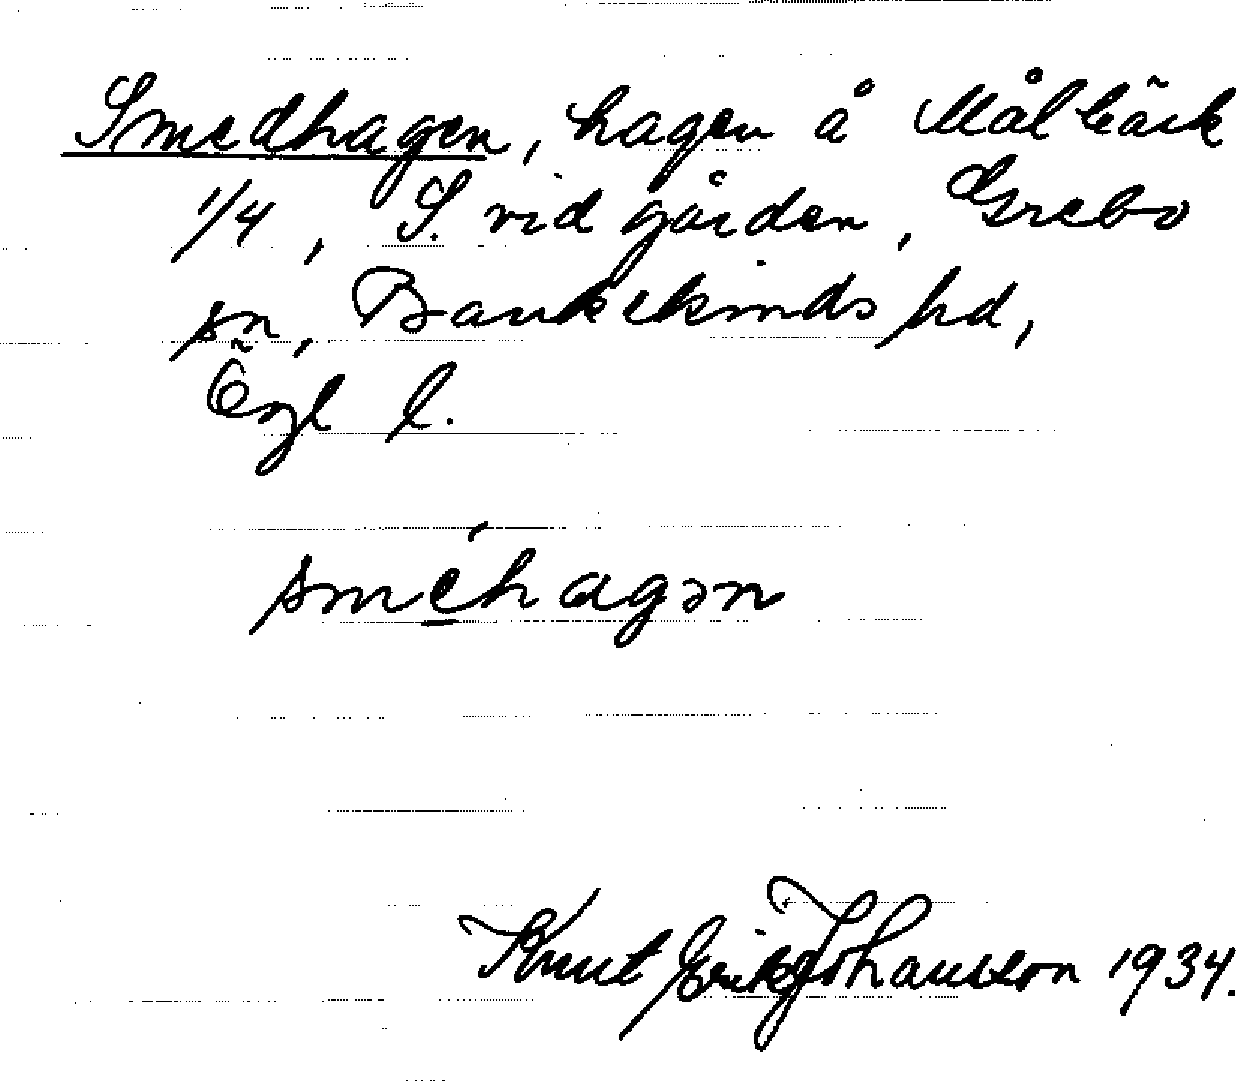 Smedhagen, hagen å Målbäck
1/4, S. vid gården, Grebo
sn, Bankekinds hd,
Ögl l.
sméhagən
Knut Erik Johansson 1934.